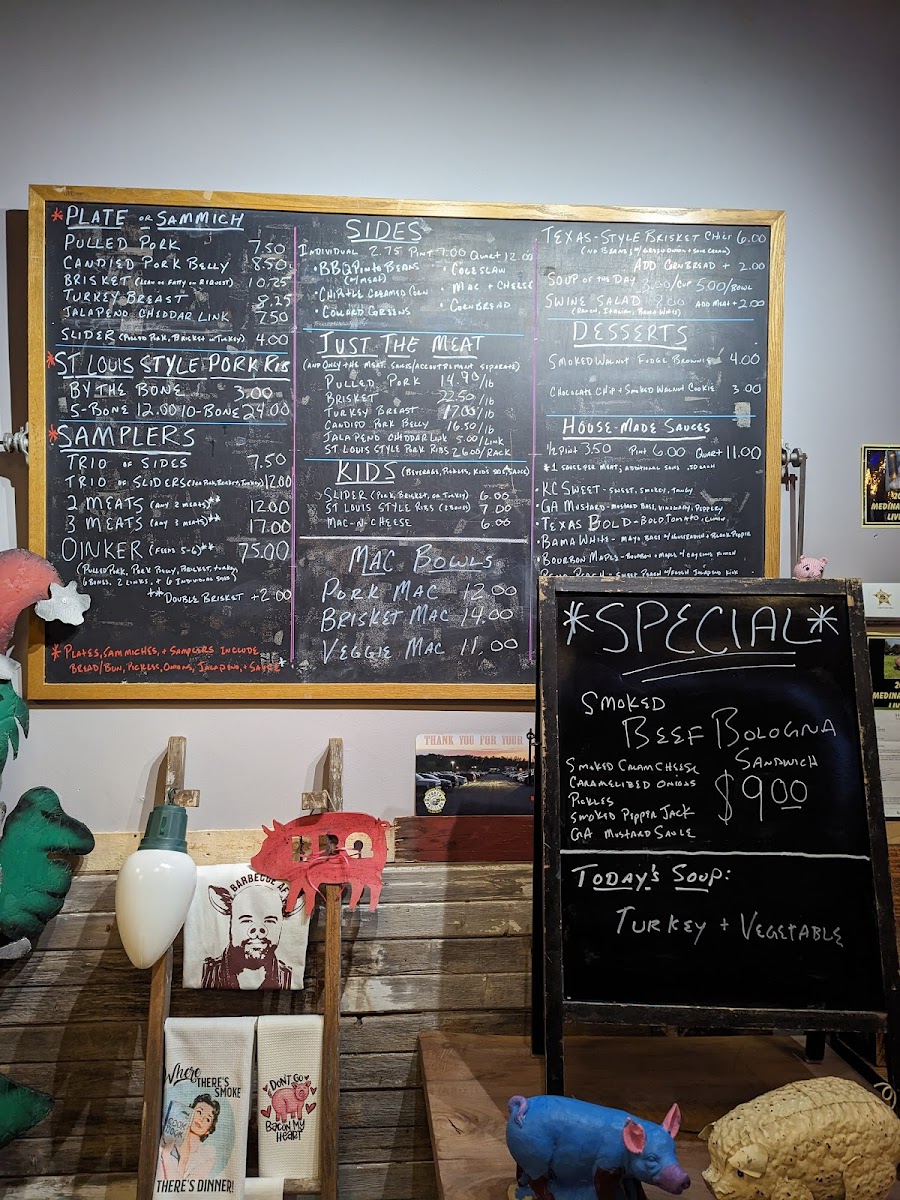 *PLATE OR SAMMICH
PULLED PORK 7.50
CANDIED PORK BELLY 8.50
BRISKET (LEAN OR FATTY ON REQUEST) 10.25
TURKEY BREAST 8.25
JALAPENO CHEDDAR LINK 7.50
SLIDER (PULLED PORK, BRISKET OR TURKEY) 4.00
*ST LOUIS STYLE PORK RIB
BY THE BONE 3.00
5-BONE 12.00 10-BONE 24.00
*SAMPLERS
TRIO OF SIDES 7.50
TRIO OF SLIDERS (PORK, BRISKET, TURKEY) 12.00
2 MEATS (ANY 2 MEATS)** 12.00
3 MEATS (ANY 3 MEATS)** 17.00
OINKER (FEEDS 5-6)** 75.00
(PULLED PORK, PORK BELLY, BRISKET, TURKEY,
6 BONES, 2 LINKS, + 6 INDIVIDUAL SIDES)
**DOUBLE BRISKET +2.00
*PLATES, SAMMICHES, + SAMPLERS INCLUDE
BREAD/BUN, PICKLES, ONIONS, JALAPENO, + SAUCE*
SIDES
INDIVIDUAL 2.75 PINT 7.00 QUART 12.00
•BBQ PINTO BEANS
(W/MEAT)
•CHIPOTLE CREAMED CORN
•COLLARD GREENS
•COLESLAW
•MAC + CHEESE
•CORNBREAD
JUST THE MEAT
(AND ONLY THE MEAT. SAUCES/ACCOUTREMENT SEPARATE)
PULLED PORK 14.90/lb
BRISKET 22.50/lb
TURKEY BREAST 17.00/lb
CANDIED PORK BELLY 16.50/lb
JALAPENO CHEDDAR LINK 5.00/LINK
ST LOUIS STYLE PORK RIBS 26.00/RACK
KIDS (BEVERAGE, PICKLES, KIDS SIDE, SAUCE)
SLIDER (PORK, BRISKET, OR TURKEY) 6.00
ST LOUIS STYLE RIBS (2 BONES) 7.00
MAC-N-CHEESE 6.00
MAC BOWLS
PORK MAC 12.00
BRISKET MAC 14.00
VEGGIE MAC 11.00
TEXAS-STYLE BRISKET CHILI 6.00
(NO BEANS, W/ GREEN ONION + SOUR CREAM)
ADD CORNBREAD + 2.00
SOUP OF THE DAY 3.60/CUP 5.00/BOWL
SWINE SALAD ADD MEAT +2.00
DESSERTS
SMOKED WALNUT FUDGE BROWNIE 4.00
CHOCOLATE CHIP + SMOKED WALNUT COOKIE 3.00
HOUSE-MADE SAUCES
1/2 PINT 3.50 PINT 6.00 QUART 11.00
*1 SAUCE PER MEAT; ADDITIONAL SAUCES .50 EACH
•KC SWEET - SWEET, SMOKEY, TANGY
•GA MUSTARD - MUSTARD BASE, VINEGARY, PEPPERY
•TEXAS BOLD - BOLD TOMATO, CUMIN
•BAMA WHITE - MAYO BASE W/ HORSERADISH + BLACK PEPPER
•BOURBON MAPLE - BOURBON + MAPLE W/ CAYENNE PUNCH
PEACH - SWEET PEACH W/ FRESH JALAPENO KICK
*SPECIAL*
SMOKED
BEEF BOLOGNA
SANDWICH
$9.00
SMOKED CREAM CHEESE
CARAMELIZED ONIONS
PICKLES
SMOKED PEPPER JACK
GA MUSTARD SAUCE
TODAY'S SOUP:
TURKEY + VEGETABLE
THANK YOU FOR YOUR
BARBECUE AF
BBQ
Where
THERE'S
SMOKE
THERE'S DINNER!
DON'T GO
BACON MY
HEART
MEDINA
LIV
MEDINA
LIV